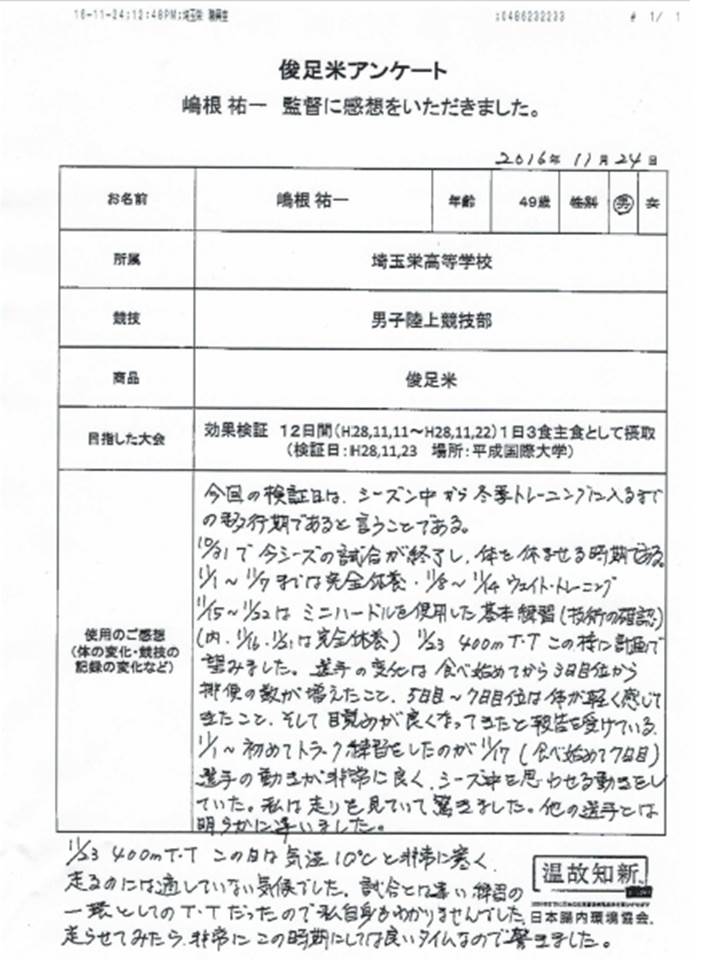 16-11-24;12:48PM;埼玉栄 職員室 ;0486232233 # 1/ 1
俊足米アンケート
嶋根 祐一 監督に感想をいただきました。
2016年 11月 24日
お名前 嶋根 祐一 年齢 49歳 性別 男 女
所属 埼玉栄高等学校
競技 男子陸上競技部
商品 俊足米
目指した大会 効果検証 12日間(H28,11,11～H28,11,22)1日3食主食として摂取
(検証日:H28,11,23 場所:平成国際大学)
使用のご感想
(体の変化・競技の
記録の変化など)
今回の検証日は、シーズン中から冬季トレーニングに入るまで
の移行期であると言うことである。
10/31で今シーズの試合が終了し、体を休ませる時期である。
11/1～11/7までは完全休養・11/8～11/14 ウェイト・トレーニング
11/15～11/22は ミニハードルを使用した基本練習(技術の確認)
(内・11/16・11/21は完全休養) 11/23 400mT・T この様に計画で
望みました。選手の変化は食べ始めてから3日目位から
排便の数が増えたこと、5日目～7日目位は体が軽く感じて
きたこと、そして目覚めが良くなってきたと報告を受けている。
11/1～初めてトラック練習をしたのが11/17(食べ始めて7日目)
選手の動きが非常に良く、シーズ中を思わせる動きをし
ていた。私は走りを見ていて驚きました。他の選手とは
明らかに違いました。
11/23 400mT・T この日は気温10℃と非常に寒く、
走るのには適していない気候でした。試合とは違い練習の
一環としてのT・Tだったので私自身もわかりませんでした。
走らせてみたら、非常にこの時期にしては良いタイムなので驚きました。
温故知新
日本腸内環境協会.